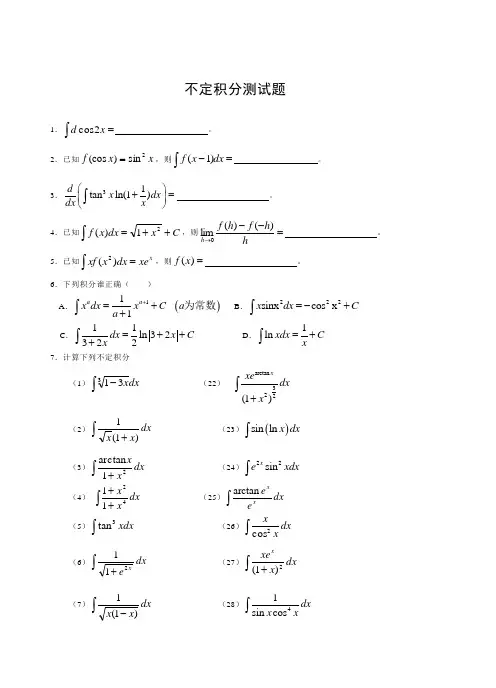 不定积分测试题
1．∫d cos2x = 。
2．已知 f(cos x) = sin² x，则∫f(x−1)dx = 。
3．d/dx (∫tan³ x ln(1+1/x)dx) = 。
4．已知∫f(x)dx = √(1+x²) + C，则 lim_{h→0} (f(h)−f(−h))/h = 。
5．已知∫xf(x²)dx = xeˣ，则 f(x) = 。
6．下列积分谁正确（ ）
A．∫xᵃdx = 1/(a+1) x^{a+1} + C (a为常数) B．∫xsinx²dx = −cos²x² + C
C．∫1/(3+2x) dx = 1/2 ln|3+2x| + C D．∫ln xdx = 1/x + C
7．计算下列不定积分
（1）∫∛(1−3x)dx （22） ∫xe^{arctan x}/(1+x²)^{3/2} dx
（2）∫1/(√x(1+x)) dx （23）∫sin(ln x)dx
（3）∫arctan x/(1+x²) dx （24）∫e^{2x} sin² xdx
（4） ∫(1+x²)/(1+x⁴) dx （25）∫arctan eˣ/eˣ dx
（5）∫tan³ xdx （26）∫x/cos² x dx
（6）∫1/√(1+e^{2x}) dx （27）∫xeˣ/(1+x)² dx
（7）∫1/√(x(1−x)) dx （28）∫1/(sin x cos⁴ x) dx